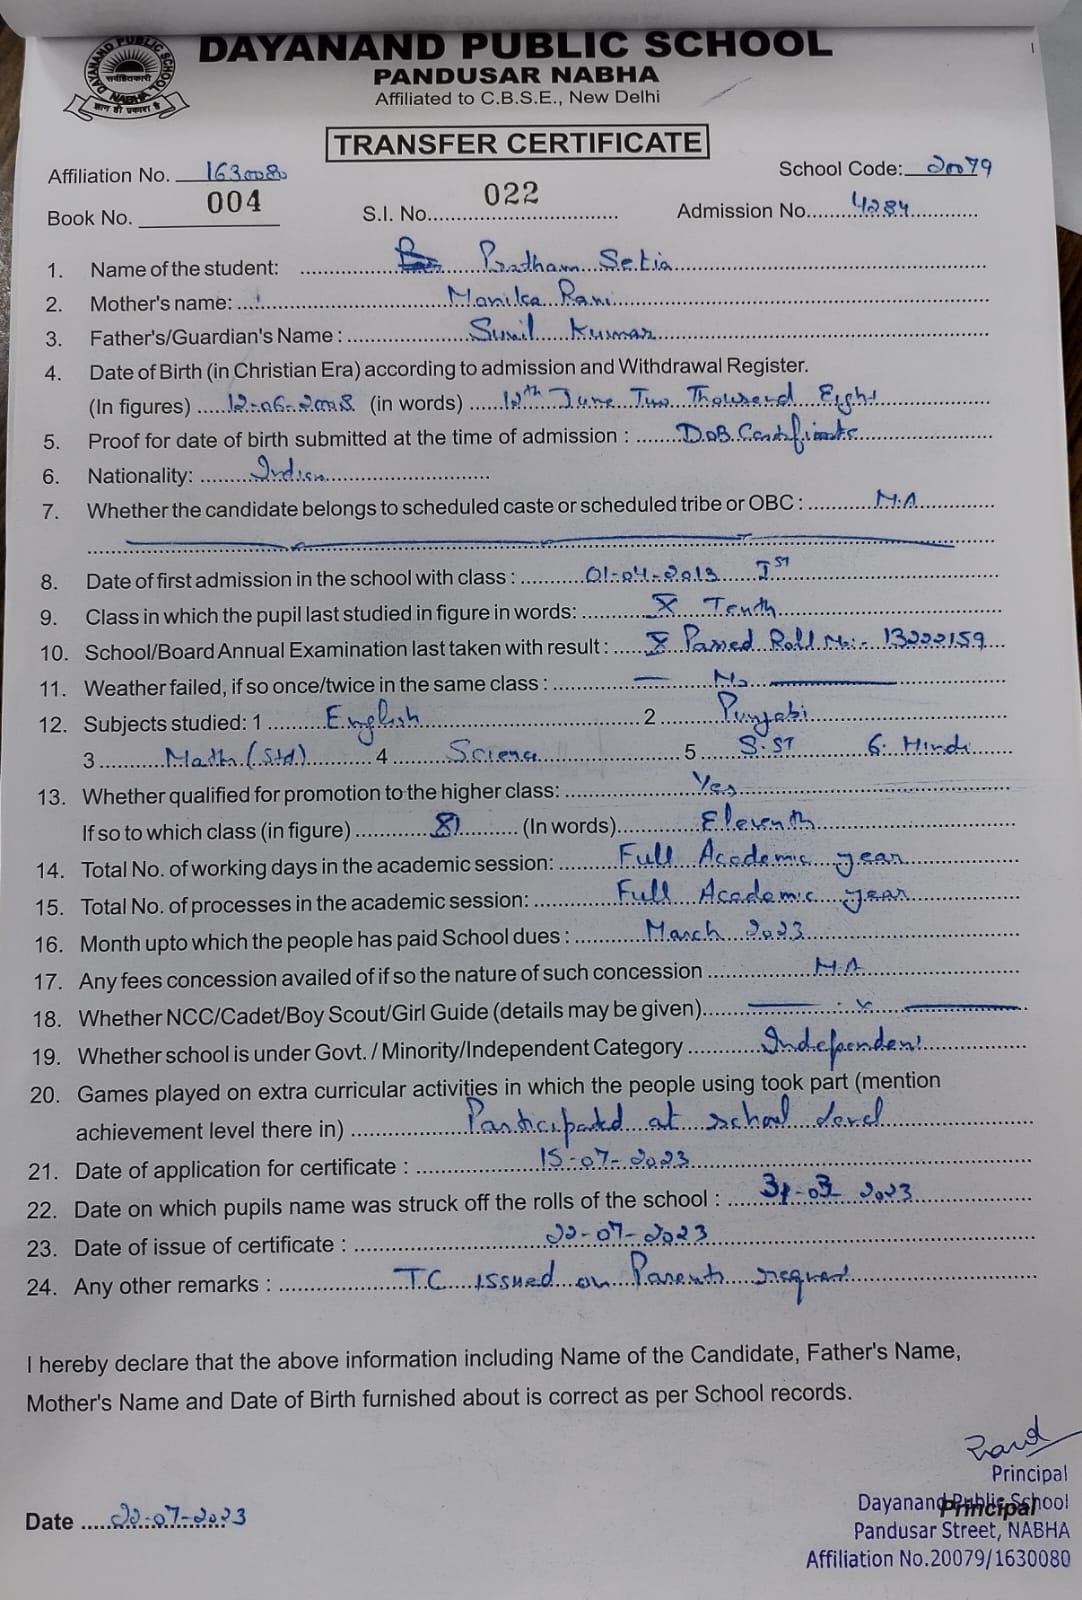 DAYANAND PUBLIC SCHOOL
PANDUSAR NABHA
Affiliated to C.B.S.E., New Delhi
DAYANAND PUBLIC SCHOOL
NABHA
TRANSFER CERTIFICATE
Affiliation No. 1630080 School Code: 20079
Book No. 004 S.I. No. 022 Admission No. 4284
1. Name of the student: Pratham Setia
2. Mother's name: Monika Rani
3. Father's/Guardian's Name : Sunil Kumar
4. Date of Birth (in Christian Era) according to admission and Withdrawal Register.
(In figures) 12-06-2008 (in words) 12th June Two Thousand Eight
5. Proof for date of birth submitted at the time of admission : D.O.B. Certificate
6. Nationality: Indian
7. Whether the candidate belongs to scheduled caste or scheduled tribe or OBC : N.A
8. Date of first admission in the school with class : 01-04-2013 Ist
9. Class in which the pupil last studied in figure in words: X Tenth
10. School/Board Annual Examination last taken with result : X Passed Roll No:- 13222159
11. Weather failed, if so once/twice in the same class : — No —
12. Subjects studied: 1 English 2 Punjabi
3 Math (Std) 4 Science 5 S.ST 6. Hindi
13. Whether qualified for promotion to the higher class: Yes
If so to which class (in figure) XI (In words) Eleventh
14. Total No. of working days in the academic session: Full Academic year
15. Total No. of processes in the academic session: Full Academic year
16. Month upto which the people has paid School dues : March 2023
17. Any fees concession availed of if so the nature of such concession N.A
18. Whether NCC/Cadet/Boy Scout/Girl Guide (details may be given) — x —
19. Whether school is under Govt. / Minority/Independent Category Independent
20. Games played on extra curricular activities in which the people using took part (mention
achievement level there in) Participated at school level
21. Date of application for certificate : 15-07-2023
22. Date on which pupils name was struck off the rolls of the school : 31-03-2023
23. Date of issue of certificate : 22-07-2023
24. Any other remarks : T.C issued on Parents request
I hereby declare that the above information including Name of the Candidate, Father's Name,
Mother's Name and Date of Birth furnished about is correct as per School records.
Principal
Dayanand Public School
Principal
Date 22-07-2023
Pandusar Street, NABHA
Affiliation No.20079/1630080